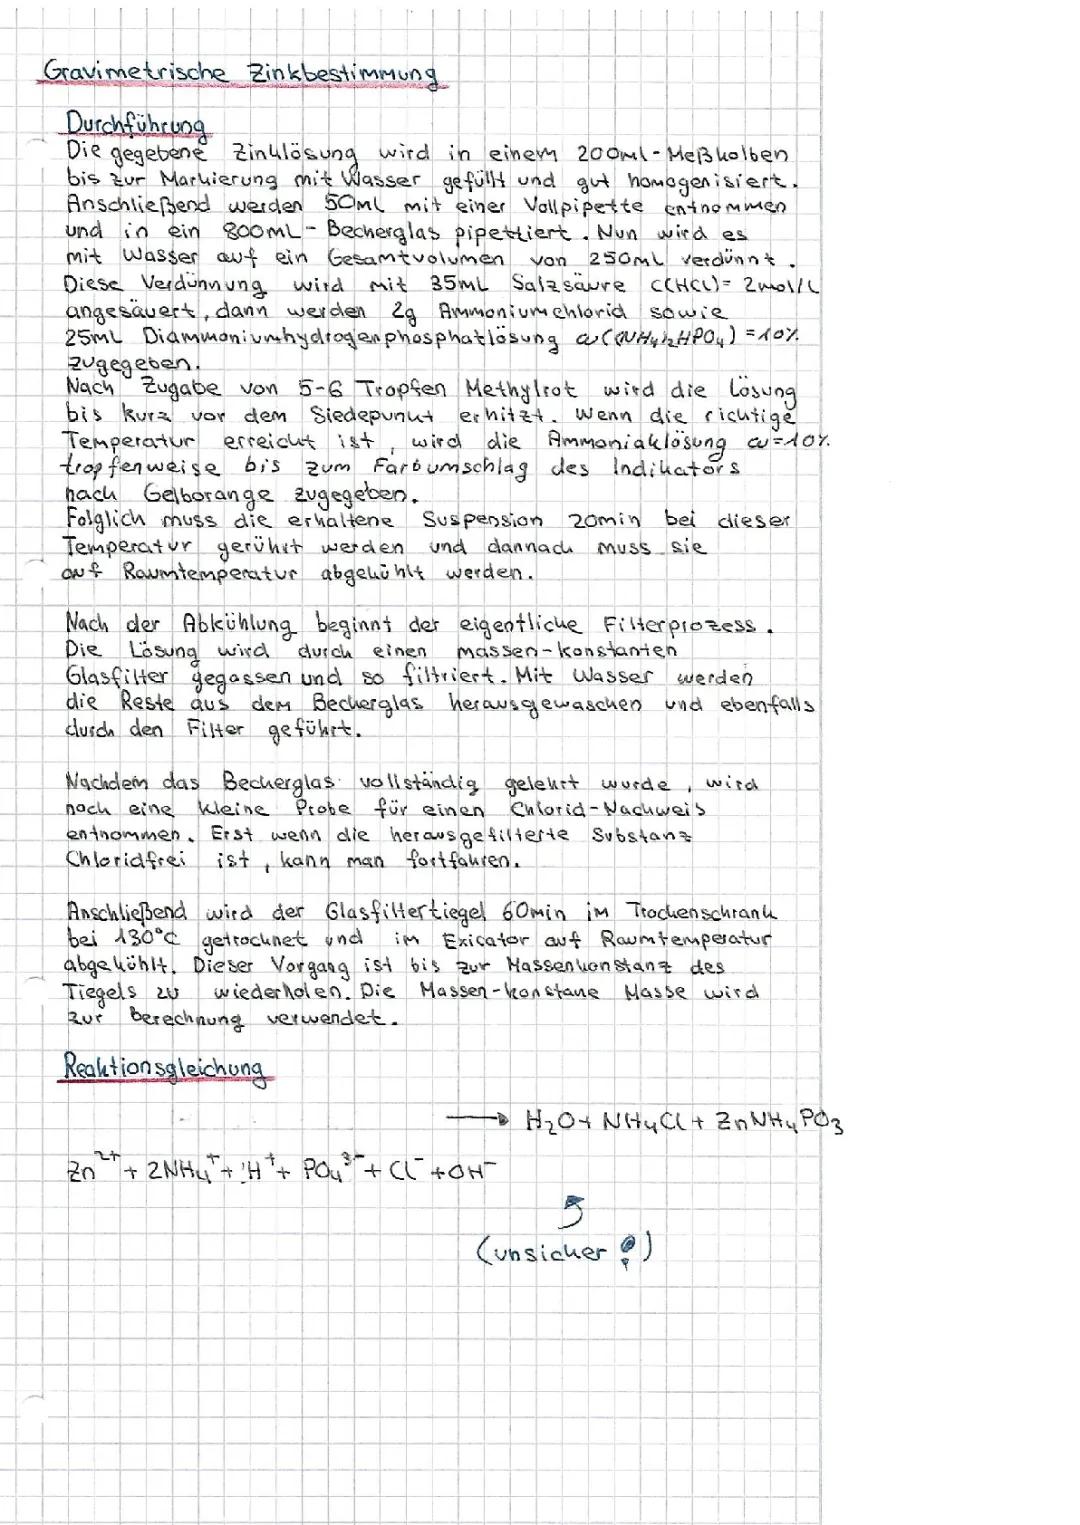 Gravimetrische Zinkbestimmung
Durchführung
Die gegebene Zinklösung wird in einem 200ml-Meßkolben
bis zur Markierung mit Wasser gefüllt und gut homogenisiert.
Anschließend werden 50mL mit einer Vollpipette entnommen
und in ein 800mL-Becherglas pipettiert. Nun wird es
mit Wasser auf ein Gesamtvolumen von 250mL verdünnt.
Diese Verdünnung wird mit 35mL Salzsäure c(HCL)=2mol/L
angesäuert, dann werden 2g Ammoniumchlorid sowie
25mL Diammoniumhydrogenphosphatlösung ω((NH₄)₂HPO₄)=10%
zugegeben.
Nach Zugabe von 5-6 Tropfen Methylrot wird die Lösung
bis kurz vor dem Siedepunkt erhitzt. Wenn die richtige
Temperatur erreicht ist, wird die Ammoniaklösung ω=10%
tropfenweise bis zum Farbumschlag des Indikators
nach Gelborange zugegeben.
Folglich muss die erhaltene Suspension 20min bei dieser
Temperatur gerührt werden und dannach muss sie
auf Raumtemperatur abgekühlt werden.
Nach der Abkühlung beginnt der eigentliche Filterprozess.
Die Lösung wird durch einen massen-konstanten
Glasfilter gegossen und so filtriert. Mit Wasser werden
die Reste aus dem Becherglas herausgewaschen und ebenfalls
durch den Filter geführt.
Nachdem das Becherglas vollständig gelehrt wurde, wird
noch eine kleine Probe für einen Chlorid-Nachweis
entnommen. Erst wenn die herausgefilterte Substanz
Chloridfrei ist, kann man fortfahren.
Anschließend wird der Glasfiltertiegel 60min im Trockenschrank
bei 130°C getrocknet und im Exicator auf Raumtemperatur
abgekühlt. Dieser Vorgang ist bis zur Massenkonstanz des
Tiegels zu wiederholen. Die Massen-konstane Masse wird
zur Berechnung verwendet.
Reaktionsgleichung
⟶ H₂O+ NH₄Cl + ZnNH₄PO₃
Zn²⁺ + 2NH₄⁺ + H⁺ + PO₄³⁻ + Cl⁻ + OH⁻
(unsicher ?)